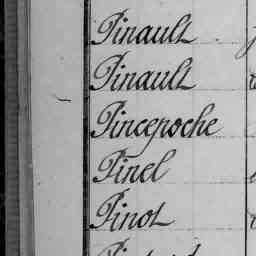 Pinault
Pinault
Pincepoche
Pinel
Pinot